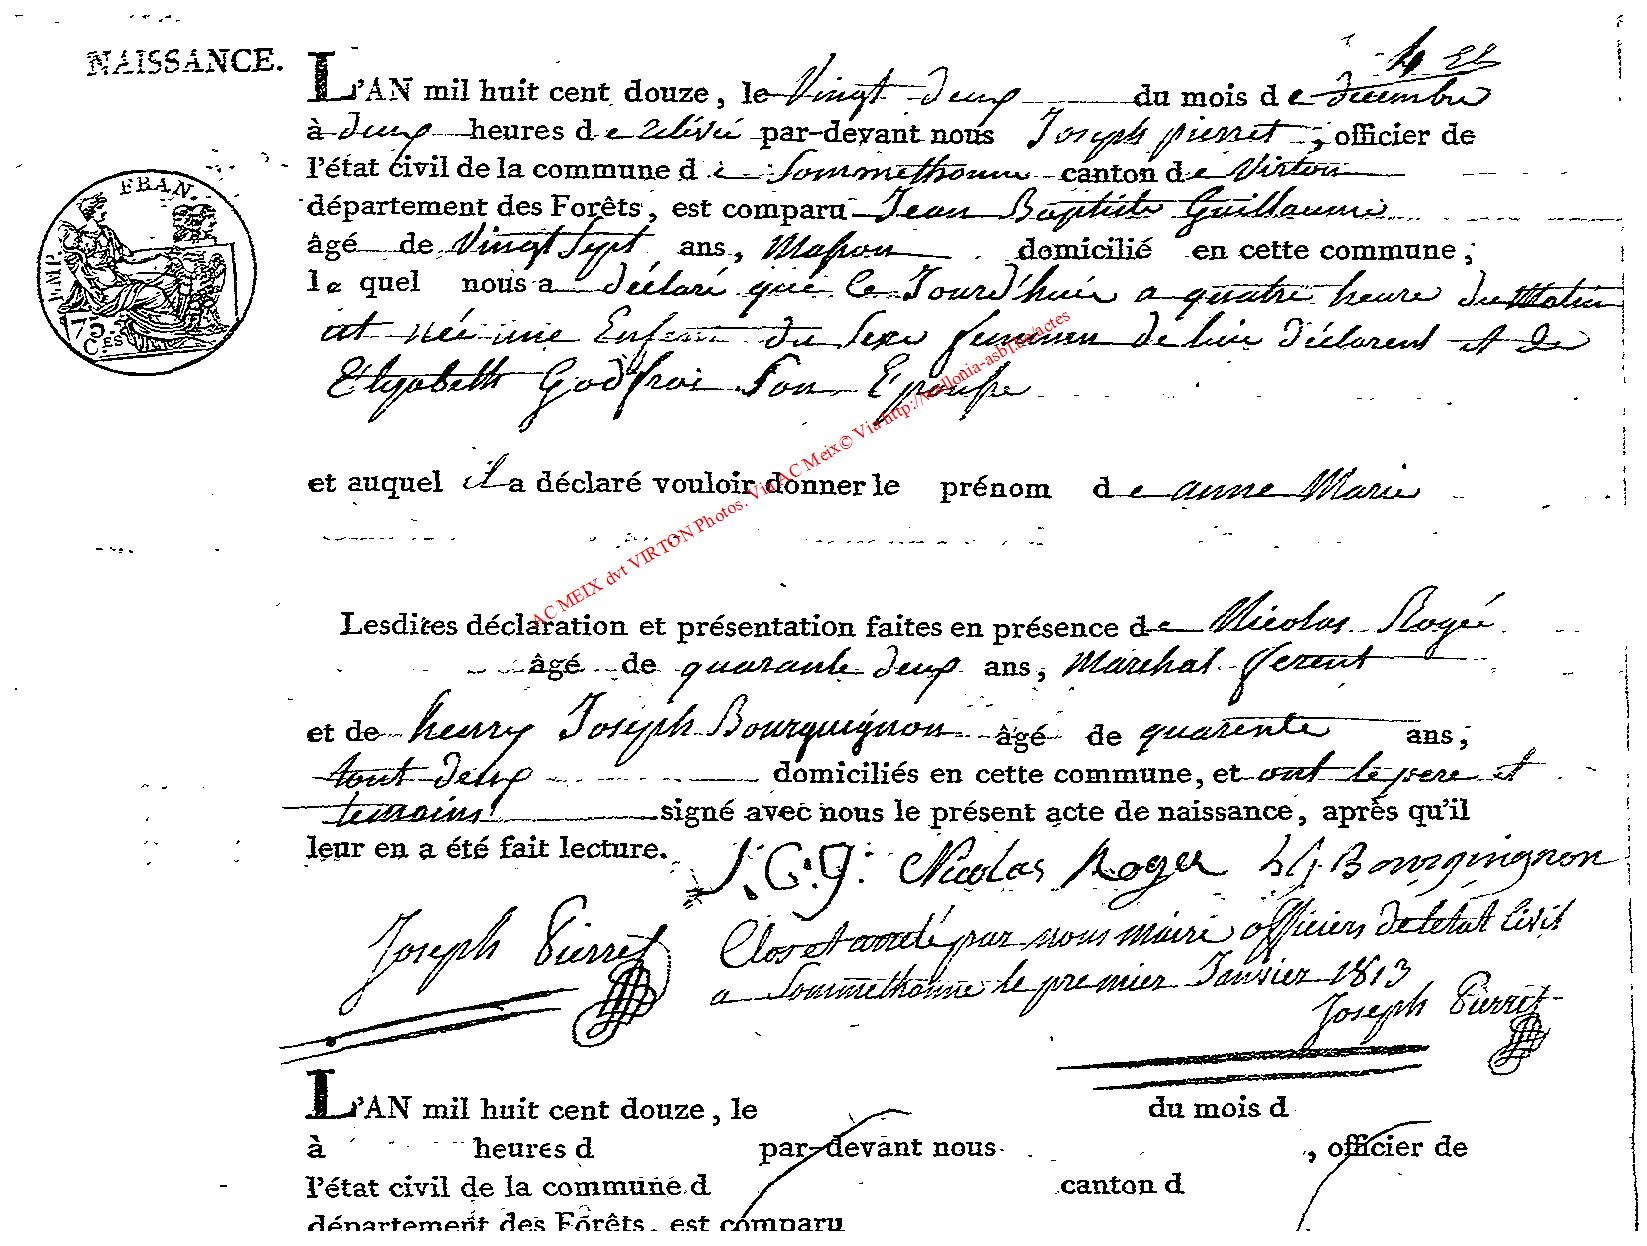 NAISSANCE.
L'AN mil huit cent douze, le Vingt deux du mois de decembre
à deux heures de relevée par-devant nous Joseph pierret, officier de
l'état civil de la commune de Sommethonne canton de Virton
département des Forêts, est comparu Jean Baptiste Guillaume
âgé de Vingt Sept ans, Masson domicilié en cette commune;
lequel nous a déclaré que Ce Jourd'huie a quatre heure du Matin
at née une Enfant du Sexe feminin de luie déclarent et de
Elizabeth Godfroi Son Epousse
et auquel il a déclaré vouloir donner le prénom de anne Marie
Lesdites déclaration et présentation faites en présence de Nicolas Rogé
âgé de quarante deux ans, Marchal ferent
et de henry Joseph Bourguignon âgé de quarente ans;
tout deux domiciliés en cette commune, et ont le pere et
temoins signé avec nous le présent acte de naissance, après qu'il
leur en a été fait lecture.
J.G.G: Nicolas Roger h J Bourguignon
Joseph Pierret
Clos et arreté par nous maire officiers de letat Civil
a Sommethonne le premier Janvier 1813
Joseph Pierret
L'AN mil huit cent douze, le du mois d
à heures d par-devant nous , officier de
l'état civil de la commune d canton d
département des Forêts, est comparu
FRAN.
EMP.
75
CES
AC MEIX dvt VIRTON Photos. Via AC Meix© Via http://wallonia-asbl.be/actes